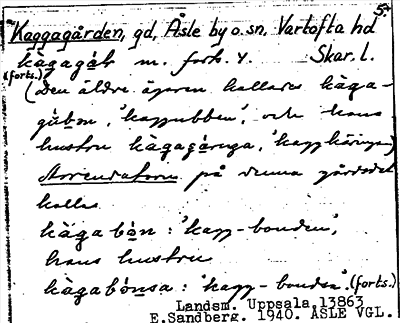 5.
Kaggagården, gd, Åsle by o. sn, Vartofta hd
kàgagár m. forts. 4. Skar. l.
(forts.)
(Den äldre ägaren kallades kàga-
gùbən, 'kaggubben', och hans
hustru kàgagäringa, 'kaggkäringen')
Arrendatorn på denna gårdsdel
kallas
kàgabòn: 'kagg-bonden',
hans hustru
kàgabónsa: 'kagg-bondsa'. (forts.)
Landsm. Uppsala 13863
E.Sandberg. 1940. ÅSLE VGL.